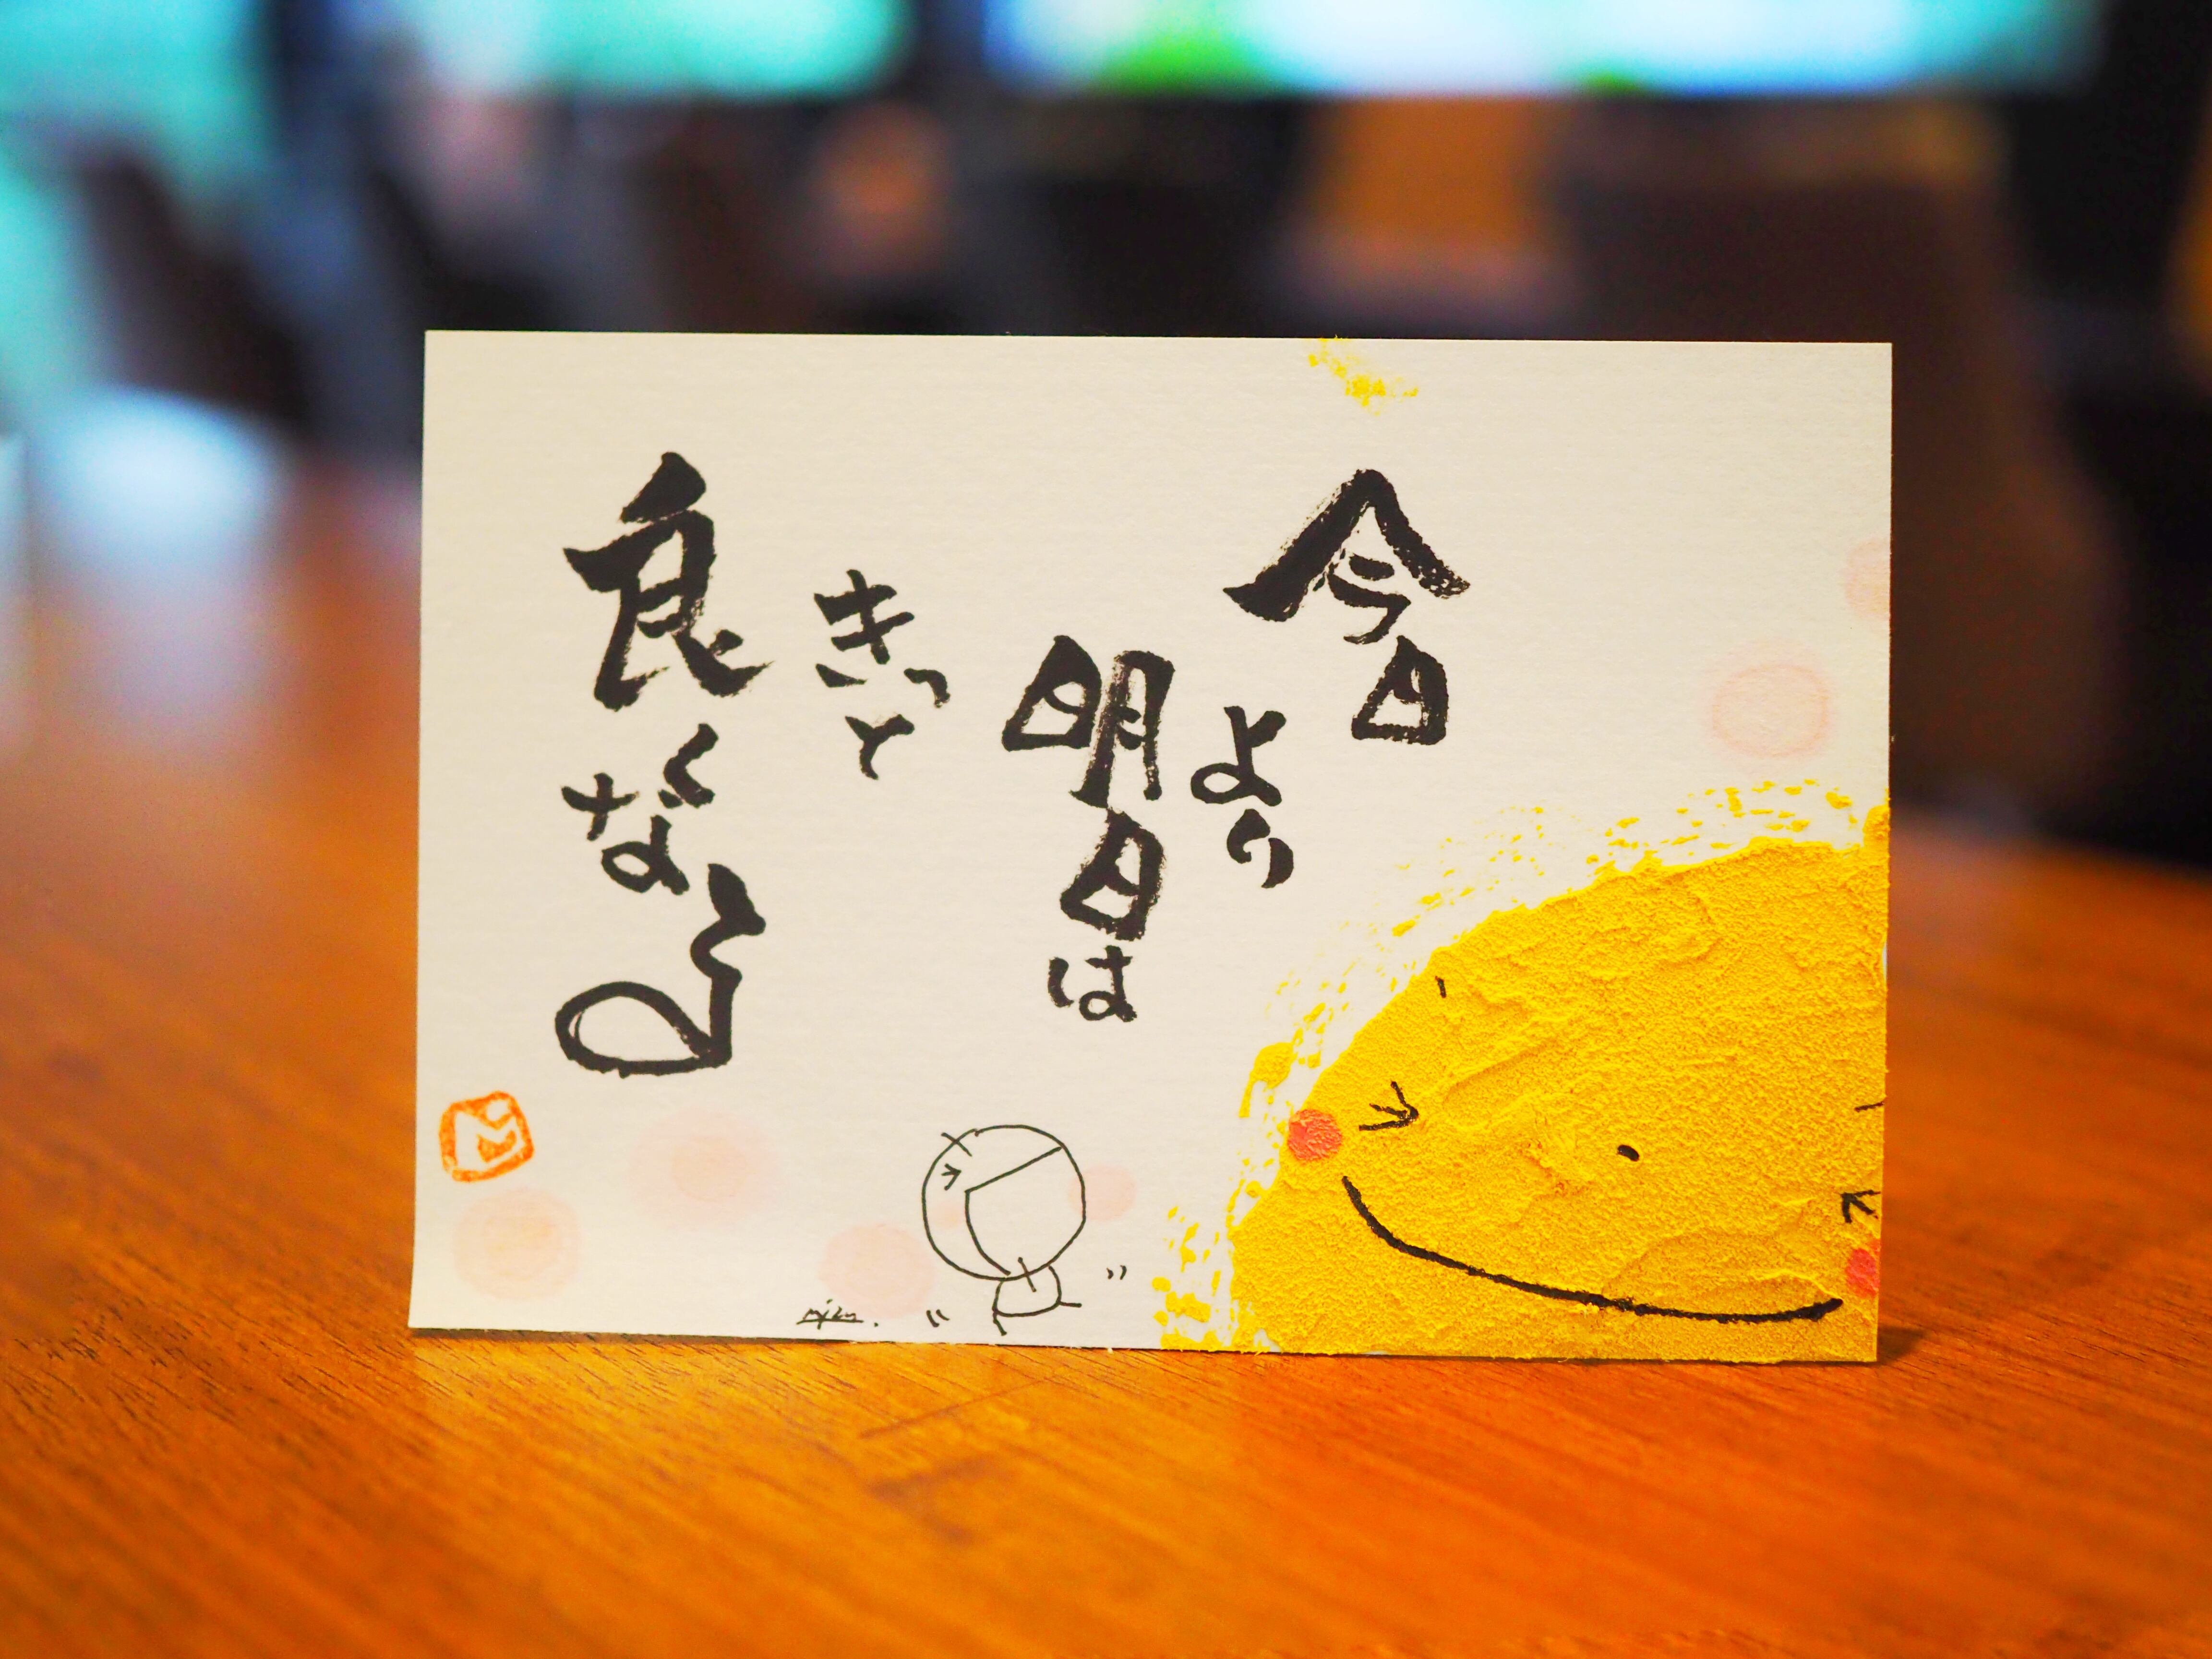 今日
より
明日は
きっと
良くなる